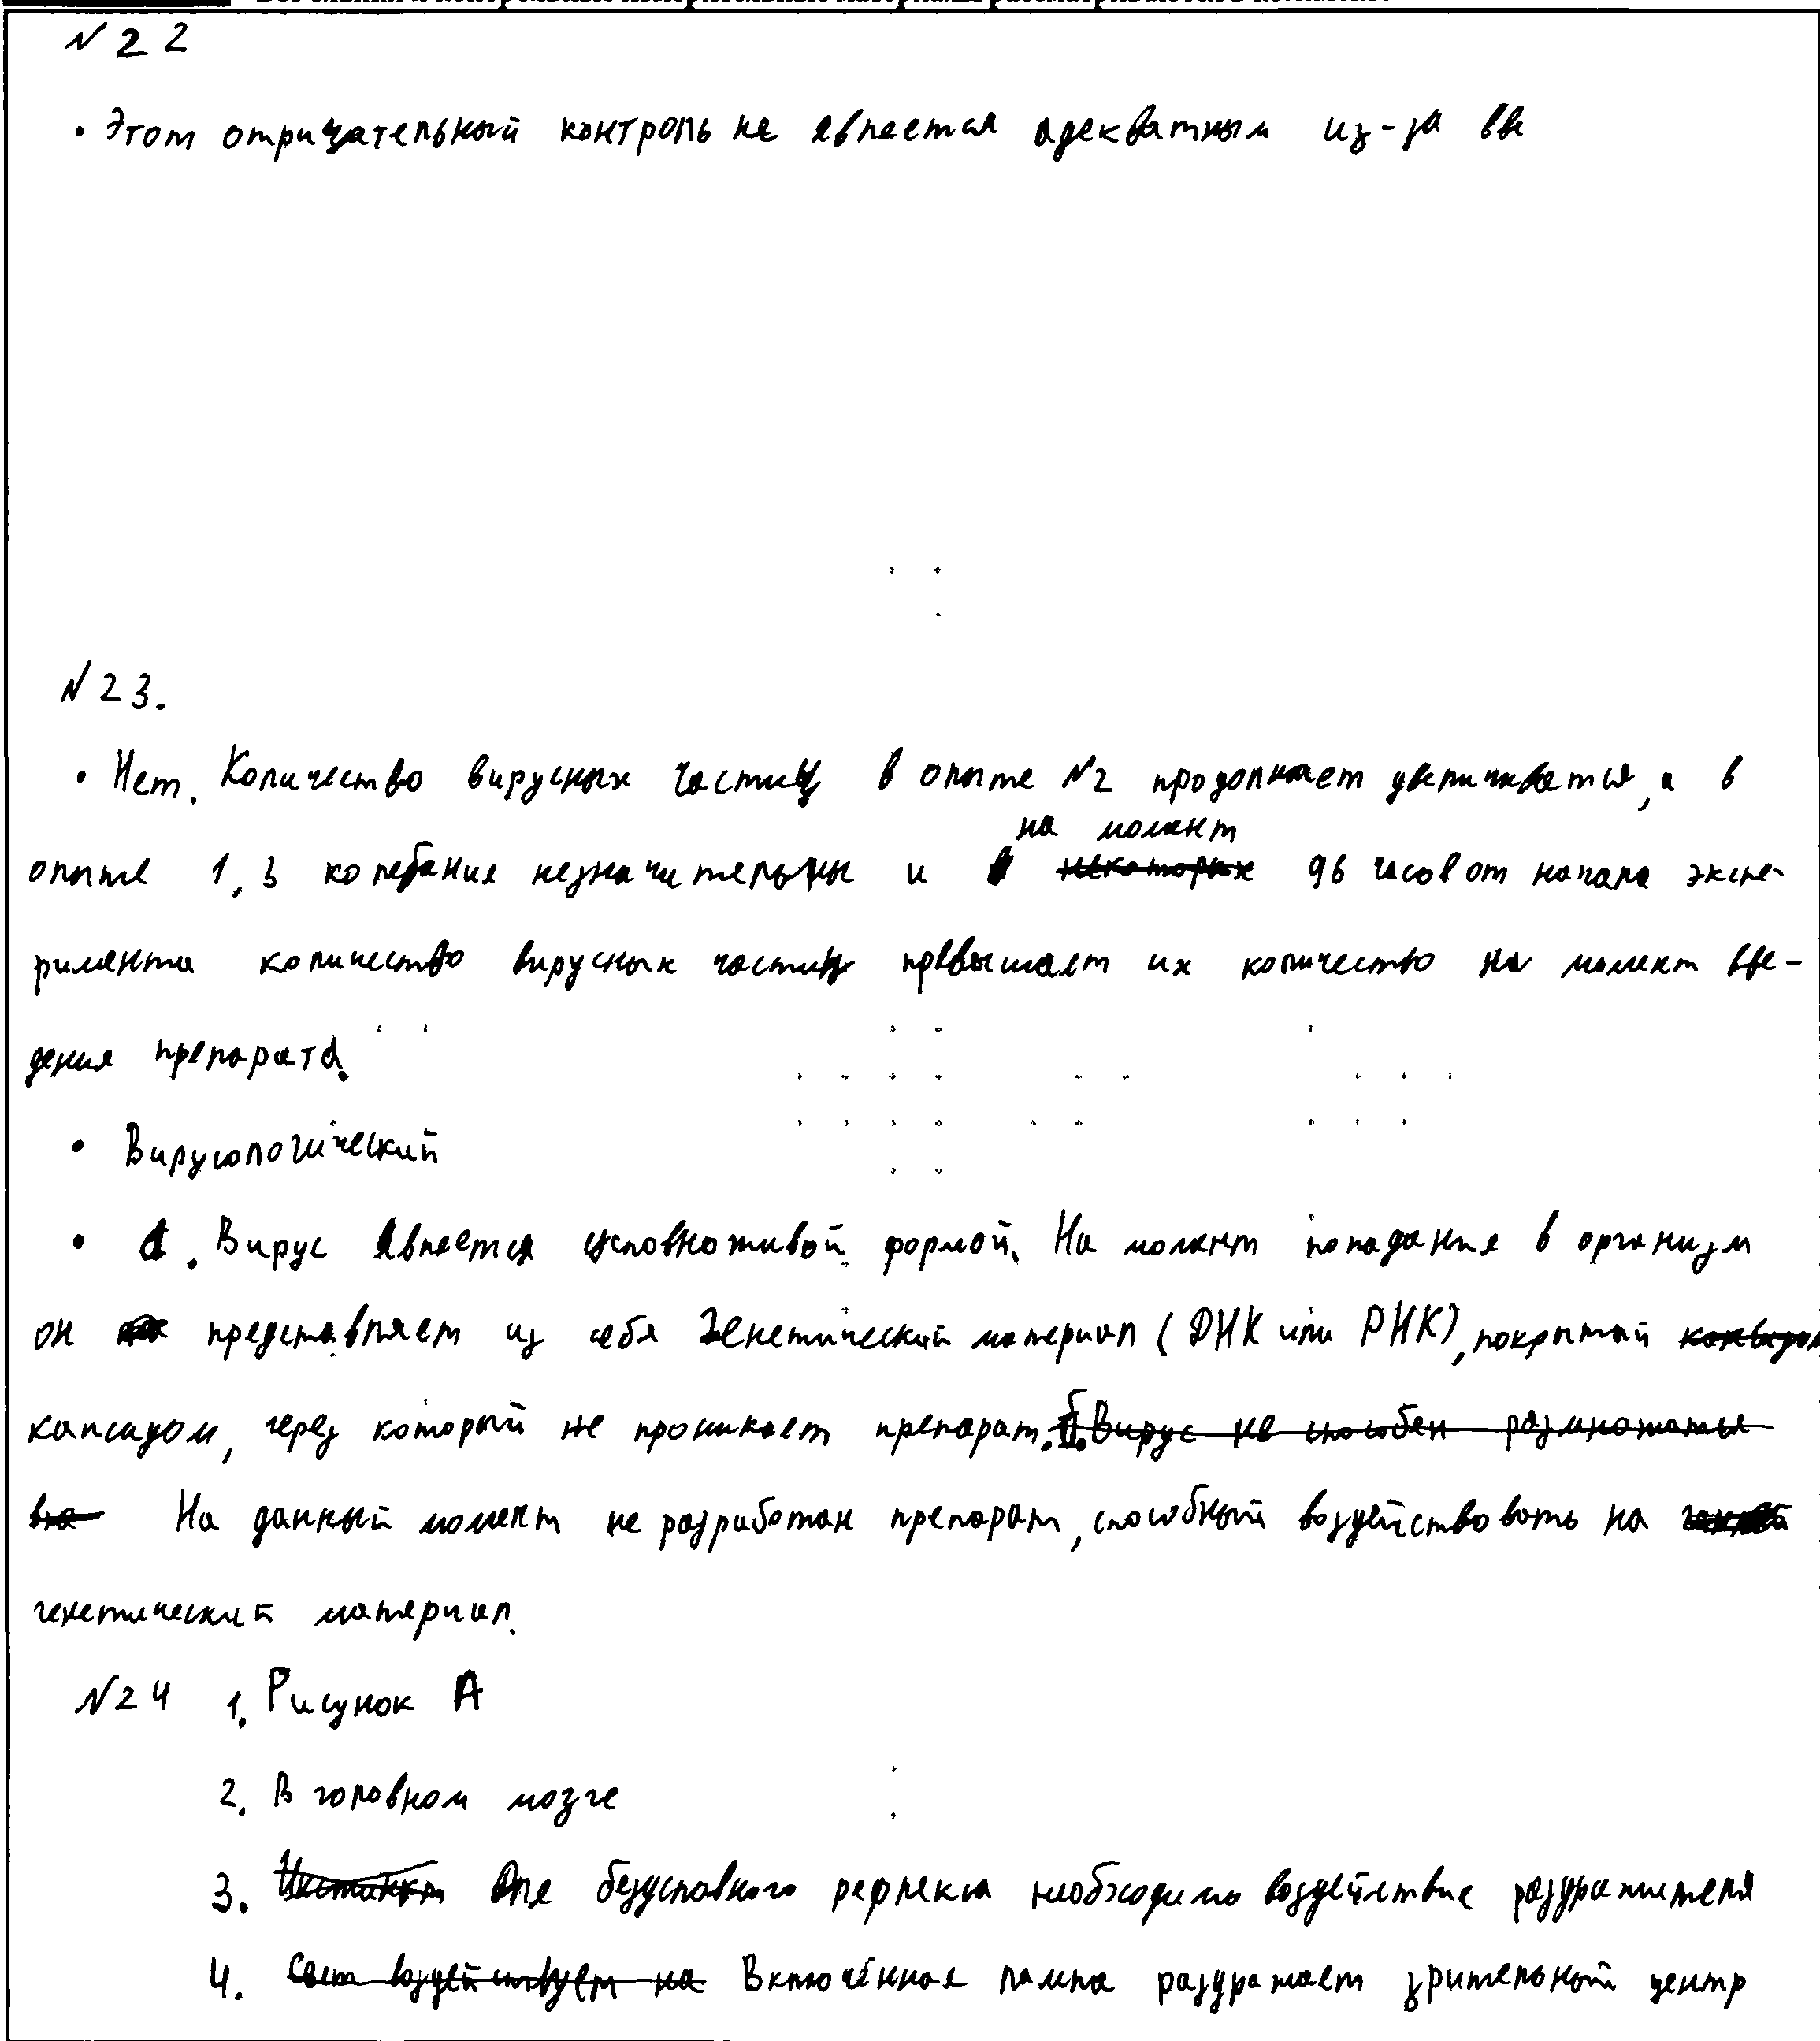 № 22
• Этот отрицательный контроль не является адекватным из-за вв
№ 23.
• Нет. Количество вирусных частиц в опыте №2 продолжает увеличиваться, а в
на момент
опыте 1, 3 колебания незначительны и некоторых 96 часов от начала экспе-
римента количество вирусных частиц превышает их количество на момент вве-
дения препарата.
• Вирусологический
• а. Вирус является условноживой формой. На момент попадания в организм
он представляет из себя генетический материал (ДНК или РНК), покрытый
капсидом, через который не проникает препарат. б. Вирус не способен размножаться
На данный момент не разработан препарат, способный воздействовать на
генетический материал.
№24 1. Рисунок А
2. В головном мозге
3. Инстинкт Для безусловного рефлекса необходимо воздействие раздражителя
4. Свет воздействует на Включённая лампа раздражает зрительный центр